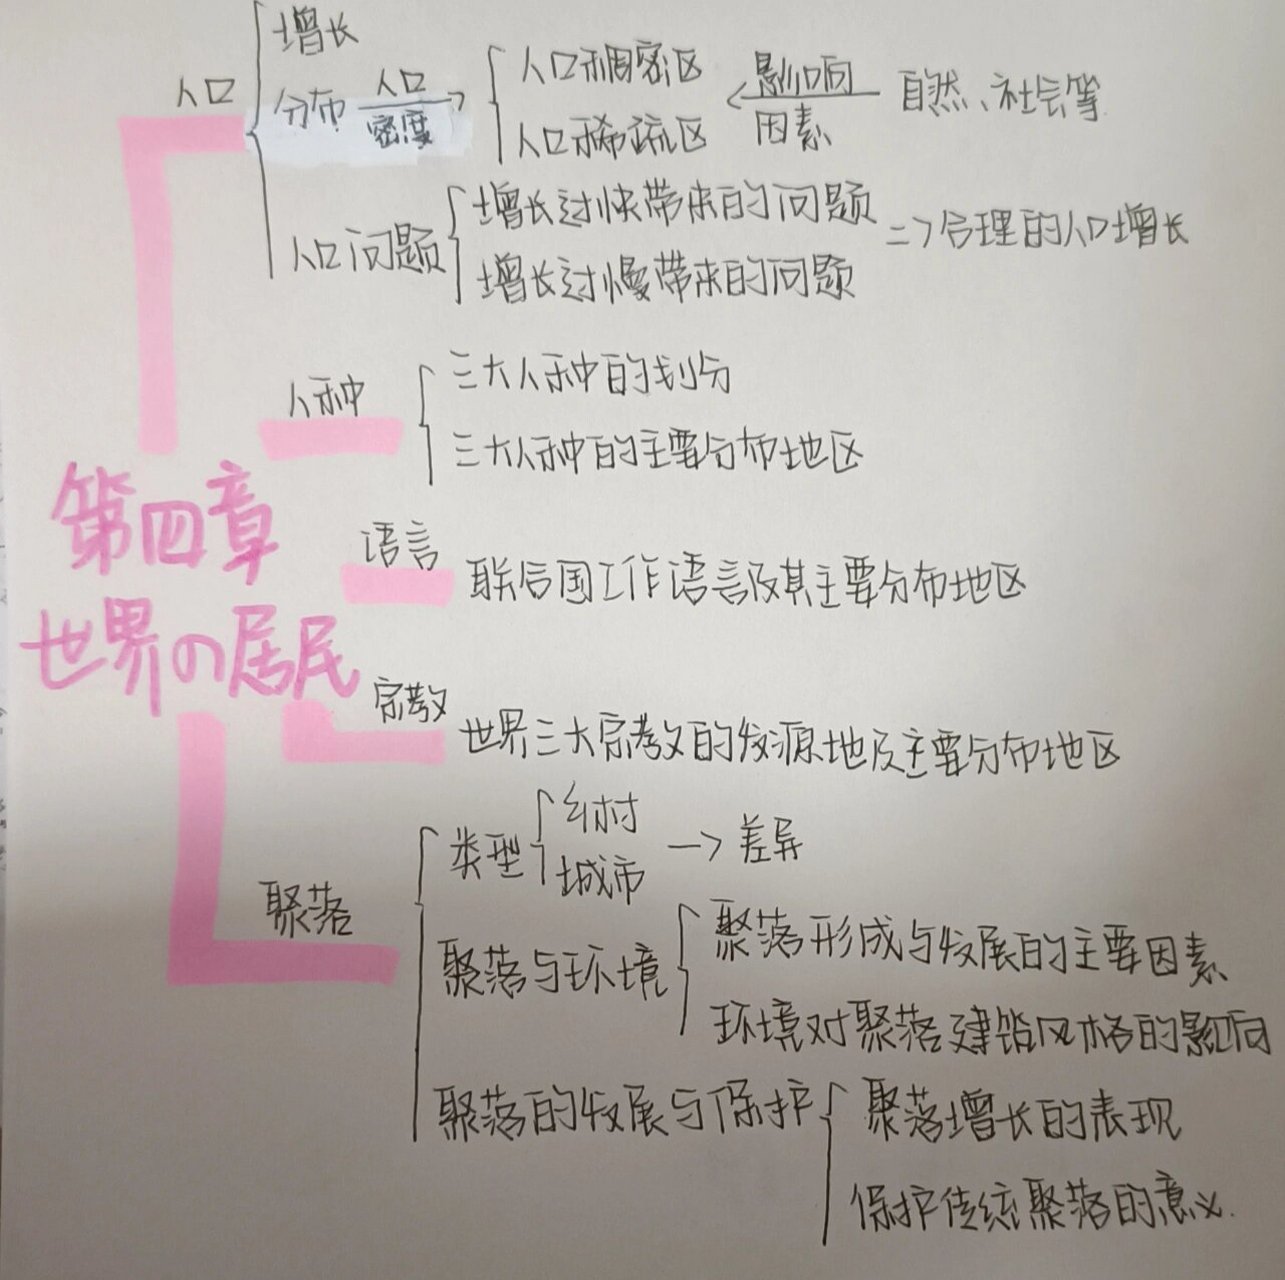 增长
人口
分布 人口密度 人口稠密区 影响因素 自然、社会等
人口稀疏区
人口问题 增长过快带来的问题 => 合理的人口增长
增长过慢带来的问题
人种 三大人种的划分
三大人种的主要分布地区
第四章
世界の居民
语言 联合国工作语言及其主要分布地区
宗教 世界三大宗教的发源地及主要分布地区
聚落
类型 乡村 → 差异
城市
聚落与环境 聚落形成与发展的主要因素
环境对聚落建筑风格的影响
聚落的发展与保护 聚落增长的表现
保护传统聚落的意义.